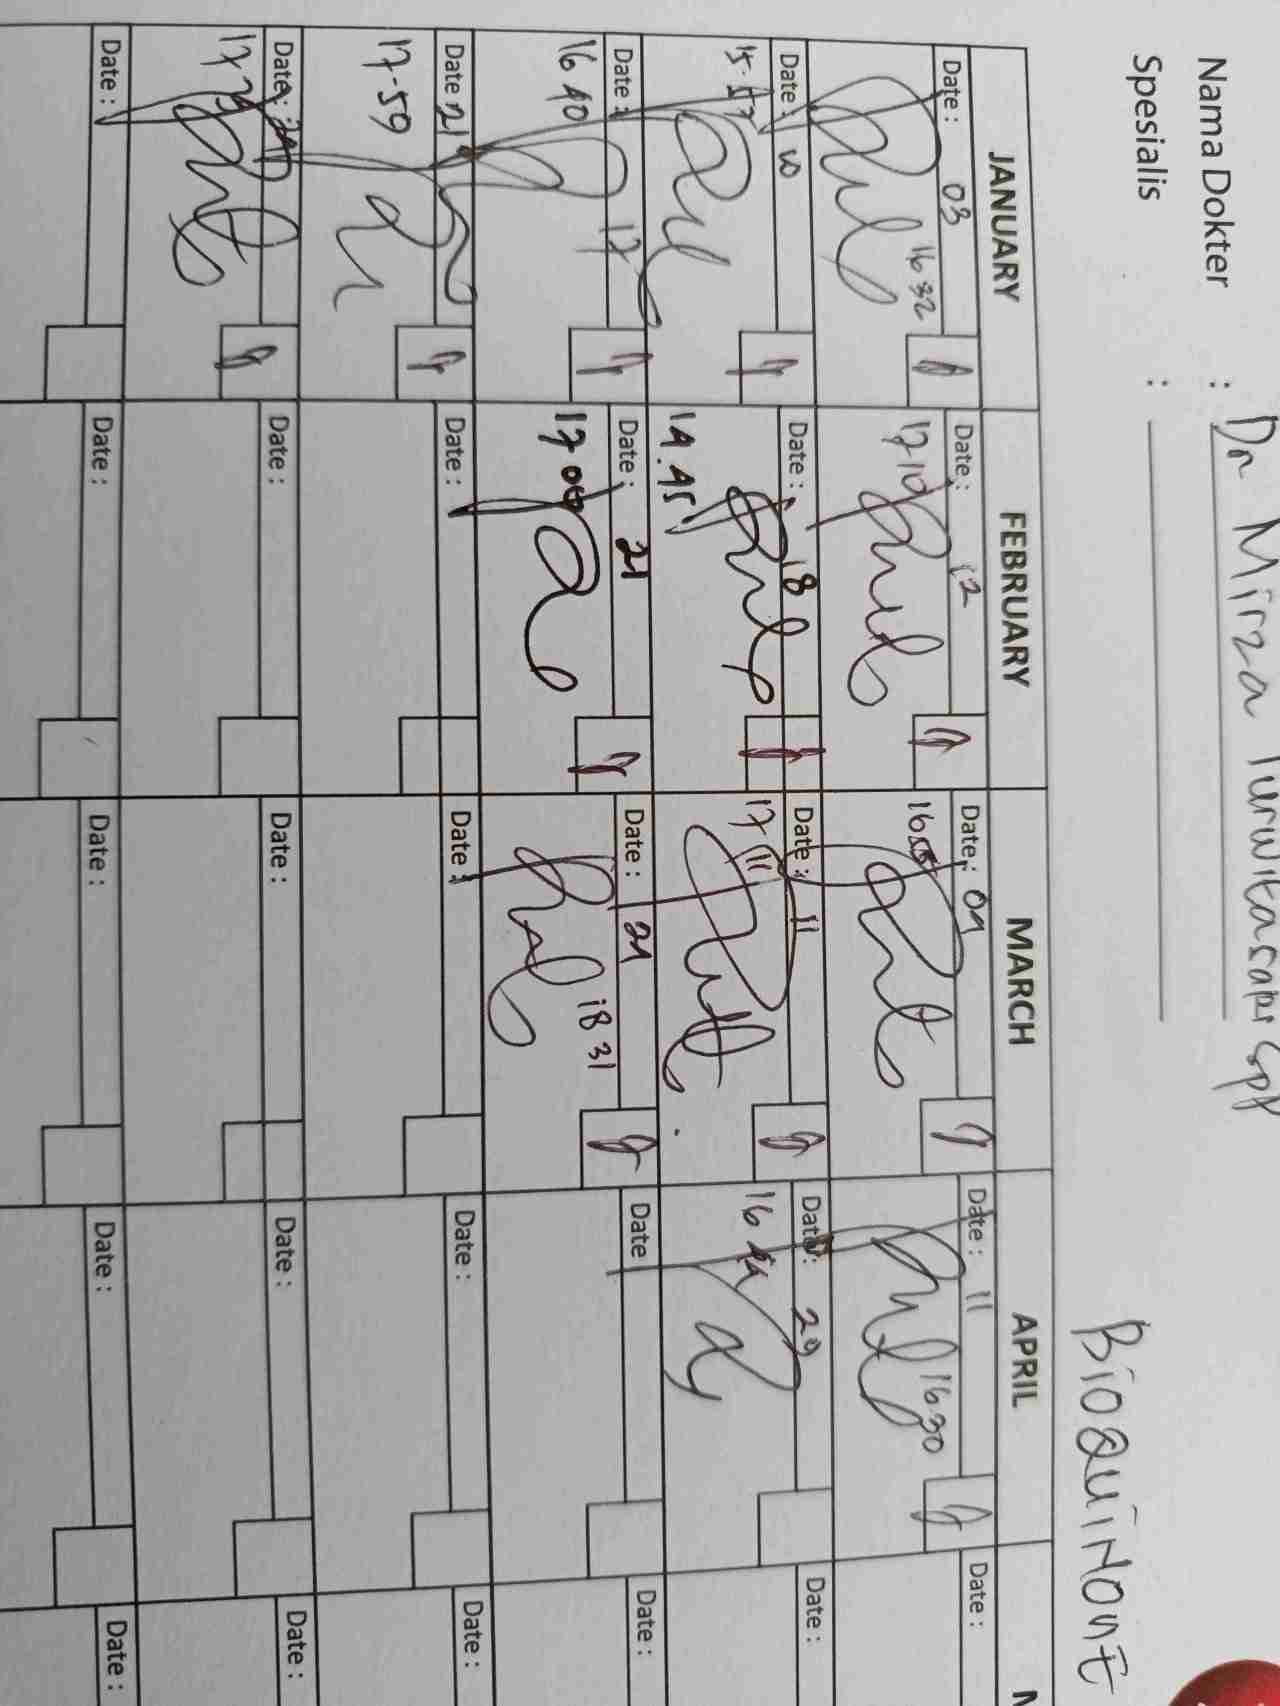 Nama Dokter : Dr Mirza
Spesialis :
BioQuiNonE
JANUARY FEBRUARY MARCH APRIL
Date : 03 Date : 12 Date : 09 Date : 11 Date :
16 32 17 10 16 30
Date : 10 Date : 18 Date : 11 Date : 29 Date :
15-57 14.45 17 11 16
Date : 17 Date : 21 Date : 24 Date Date :
16 40 17 06 18 31
Date 21 Date : Date : Date : Date :
17-59
Date : Date : Date : Date : Date :
17
Date : Date : Date : Date : Date :